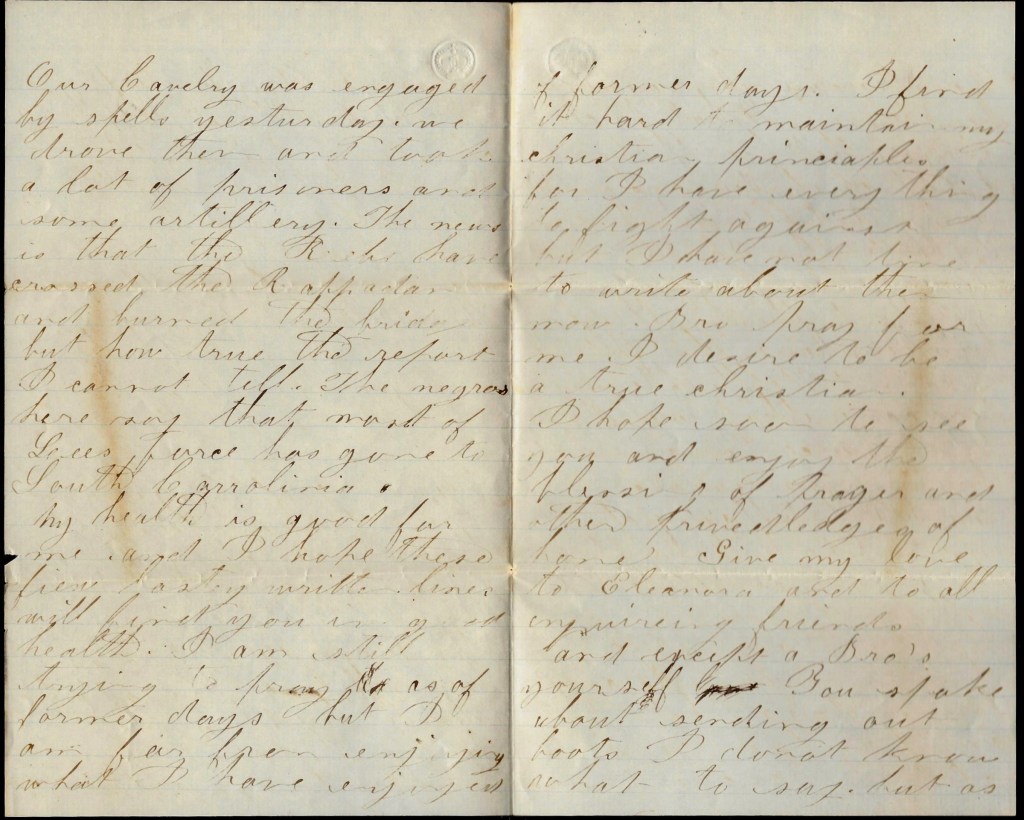 Our Cavelry was engaged
by spells yesturday. we
drove them and took
a lot of prisoners and
some artillery. The news
is that the Rebs have
crossed the Rappadan
and burned the bridg
but how true the report
I cannot tell. The negros
here say that most of
Lees furce has gone to
South Carrolinia.
My health is good for
me and I hope these
few hasty written lines
will find you in good
health. I am still
trying to pray as of
former days but I
am far from enjoying
what I have enjoyed
of former days. I find
it hard to maintain my
christian princiaples
for I have everything
to fight against
but I have not time
to write about them
now. Bro pray for
me. I desire to be
a true christian.
I hope soon to see
you and enjoy the
blessing of prayer and
other priveledges of
home. Give my love
to Eleanora and to all
enquireing friends
and except a Bro's
yourself You spoke
about sending out
boots I donot know
what to say. but as